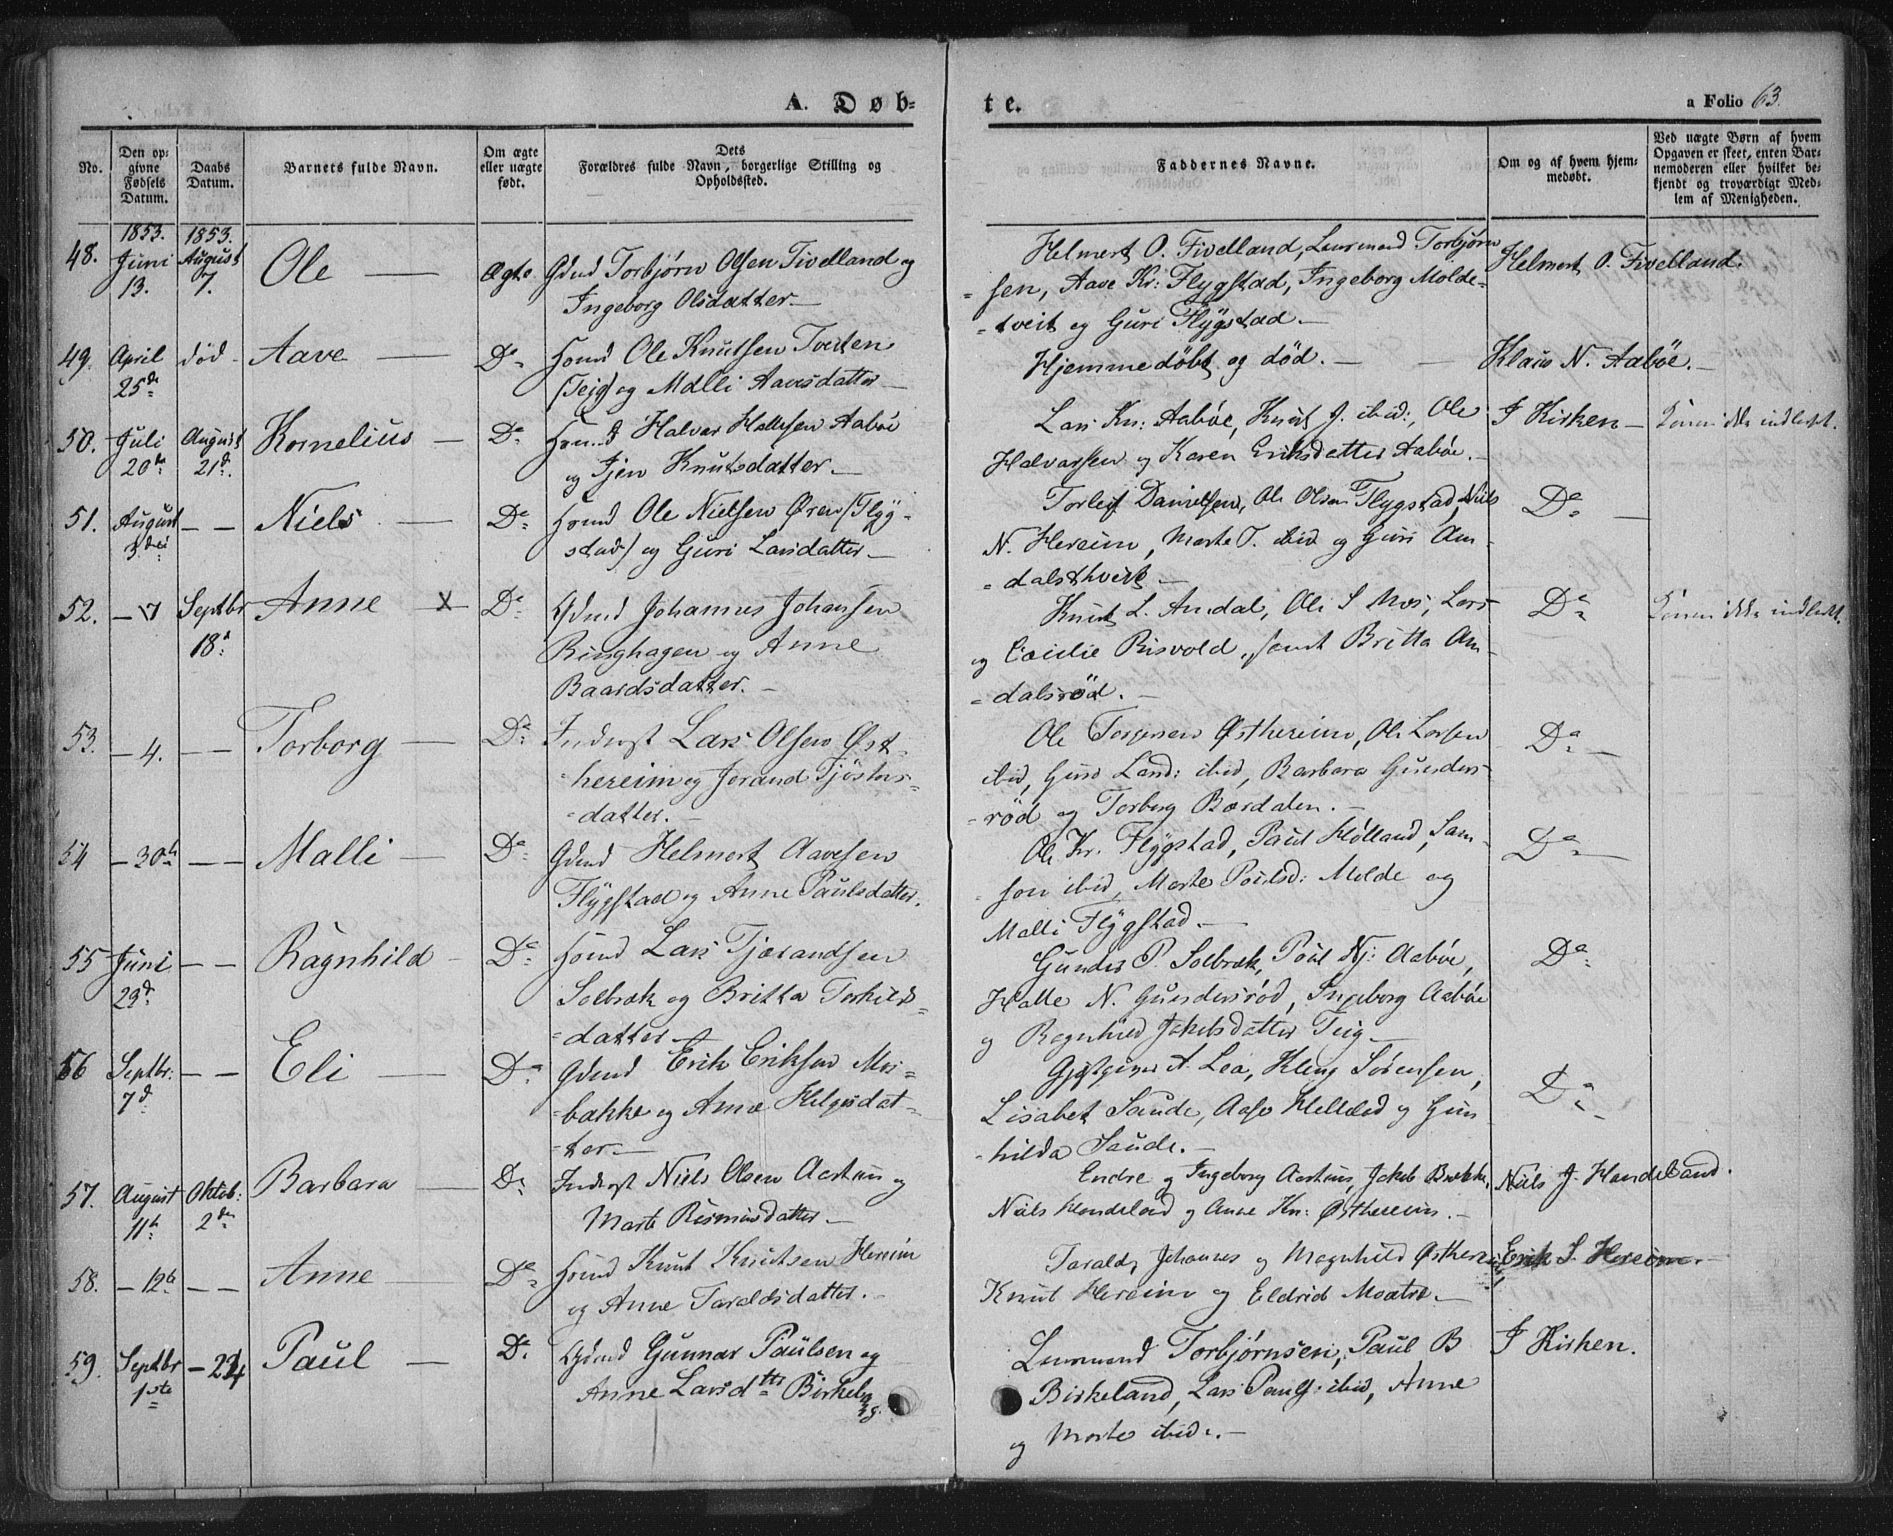 A. Døb-
te.
a Folio 63.
No.
Den op-
givne
Fødsels
Datum.
Daabs
Datum.
Barnets fulde Navn.
Om ægte
eller uægte
født.
Dets
Forældres fulde Navn, borgerlige Stilling og
Opholdssted.
Faddernes Navne.
Om og af hvem hjem-
medøbt.
Ved uægte Børn af hvem
Opgaven er skeet, enten Bar-
nemoderen eller hvilket be-
kjendt og troværdigt Med-
lem af Menigheden.
48.
1853.
Juni
13.
1853.
August
7.
Ole
Ægte
Gdmd Torbjørn Olsen Tivelland og
Ingeborg Olsdatter
Helmert O. Tivelland, Torbjørn
sen, Aave Kr: Flygstad, Ingeborg Molde-
tveit og Guri Flygstad
Helmert O. Tivelland
49.
April
25de
død
Aave
Do
Huusmd Ole Knutsen Tveten
(Teig) og Malli Aavesdatter
Hjemmedøbt og død.
Klaus N. Aabøe.
50.
Juli
20de
August
21d.
Kornelius
Do
Hmd Halvar Hallesen Aabøe
og Knutsdatter
Lars Kn: Aabøe, Knut J. ibid:, Ole
Halvarsen og Karen Eriksdatter Aabøe.
I Kirken
Konen ikke indledt.
51.
August
3die
Niels
Do
Hmd Ole Nielsen Øren (Flyg-
stad) og Guri Larsdatter
Torleif Danielsen, Ole Olsen Flygstad, Niels
N. Hereim, Marte T. ibid og Guri Am-
dalsthveit
Do
52.
7
Septbr
18d
Anne X
Do
Gdmd Johannes Johansen
Ringhagen og Anne
Baardsdatter.
Knut L. Amdal, Ole S Mæs, Lars
og Cecilie Risvold, samt Britta Am-
dalsrød.
Do
Konen ikke indledt.
53.
4.
Torborg
Do
Inderst Lars Olsen Øst-
hereim og Jorand Tjøstars-
datter.
Ole Torgersen Østhereim, Ole Larsen
ibid, Guro Larsd: ibid, Barbara Gunders-
rød og Torborg Bærdalen.
Do
54
30te
Malli
Do
Gdmd Helmert Aavesen
Flygstad og Anne Paulsdatter.
Ole Kr. Flygstad, Paul Hølland, Sam-
son ibid, Marte Poulsd: Molde og
Malli Flygstad.
Do
55
Juni
23d.
Ragnhild
Do
Hmd Lars Tjærandsen
Solbræk og Britta Torkilds-
datter
Gunder P. Solbræk, Poul Nj: Aabøe,
Halle N. Gundersrød, Ingeborg Aabøe
og Ragnhild Jakobsdatter Teig
Do
56
Septbr:
7d
Eli
Do
Gdmd Erik Eriksen Mos-
bakke og Anna Helgesdat-
ter
Gjestgiver A. Lea, Kleng Sørensen,
Lisabet Saude, Aase og Gun-
hilda Saude.
Do
57.
August
11te
Oktob:
2den
Barbara
Do
Inderst Niels Olsen Aartun og
Marte Rasmusdatter
Endre og Ingeborg Aartun, Jakob Bakke,
Niels Handeland og Anne Kn: Østhereim.
Niels J. Handeland.
58.
12te
Anne
Do
Hmd Knut Knutsen Hereim
og Anne Taraldsdatter.
Tarald, Johannes og Magnhild Østhereim,
Knut Hereim og Eldrid Moatre
Erik S. Hereim.
59.
Septbr
1ste
24
Paul
Do
Gdmd Gunnar Paulsen og
Anne Larsdtr Birkeland
Torbjørnsen, Paul B
Birkeland, Lars Pauls: ibid, Anne
og Marte ibid.
I Kirken.